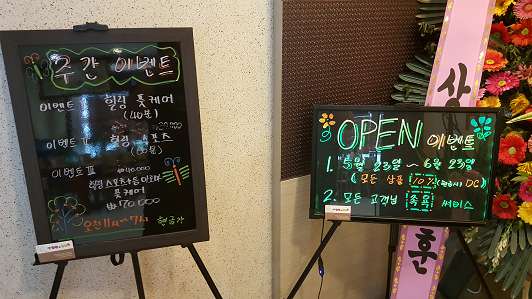 주간 이벤트
이벤트 I 힐링 풋케어
(40분)
이벤트 II 힐링
이벤트 III ₩40,000
풋케어
₩70,000
오전 11시~7시
OPEN 이벤트
1. 5월 23일 ~ 6월 23일
(모든 상품 10% DC)
2. 모든 고객님 족욕 써비스
상
훈